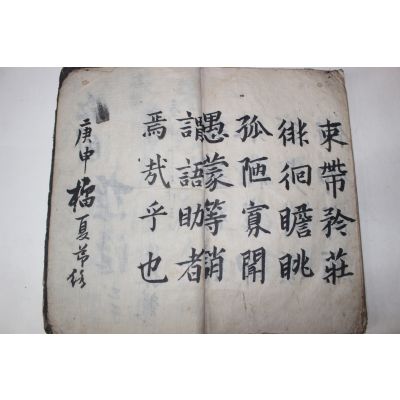 束帶矜莊
徘徊瞻眺
孤陋寡聞
愚蒙等誚
謂語助者
焉哉乎也
庚申榴夏